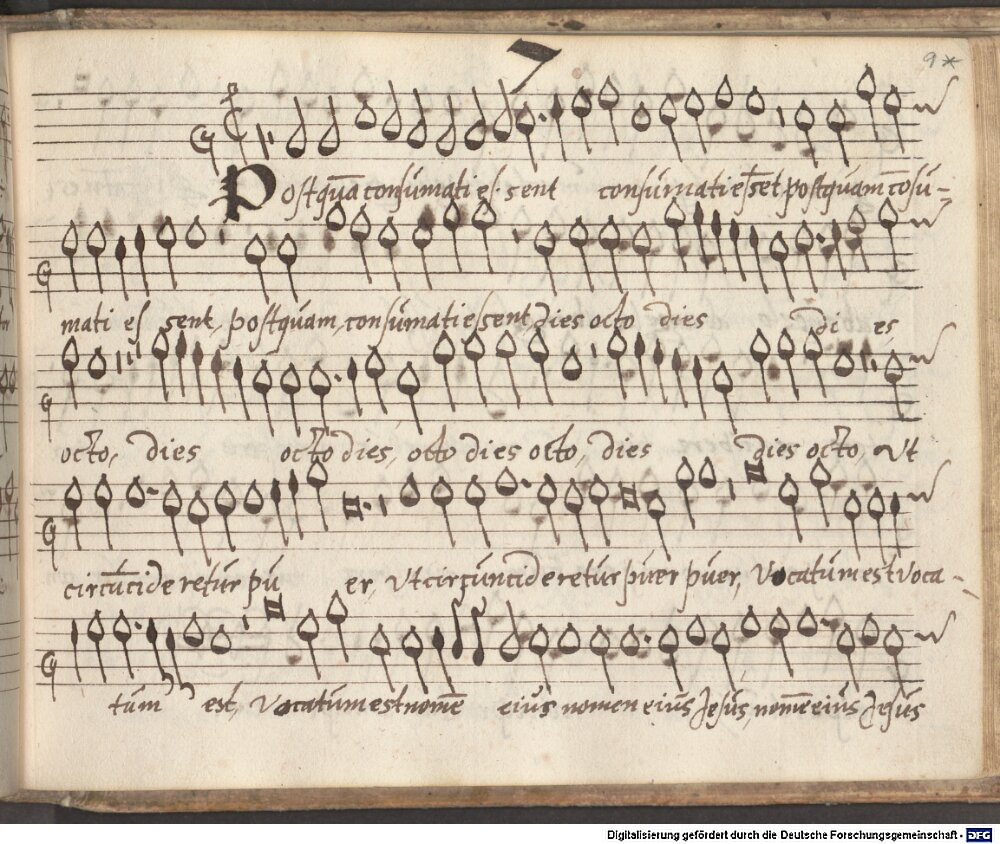 7
9*
Postquā consumati es sent consumati essēt postquam cōsu-
mati es sent, postquam, consumati essent dies octo dies di es
octo, dies octo dies, octo dies octo, dies dies octo, Vt
circūcideretur pu er, Vt circuncideretur puer puer, Vocatum est voca-
tum est, Vocatum est nomē eius nomen eius Jesus, nomē eius Jesus
Digitalisierung gefördert durch die Deutsche Forschungsgemeinschaft - DFG